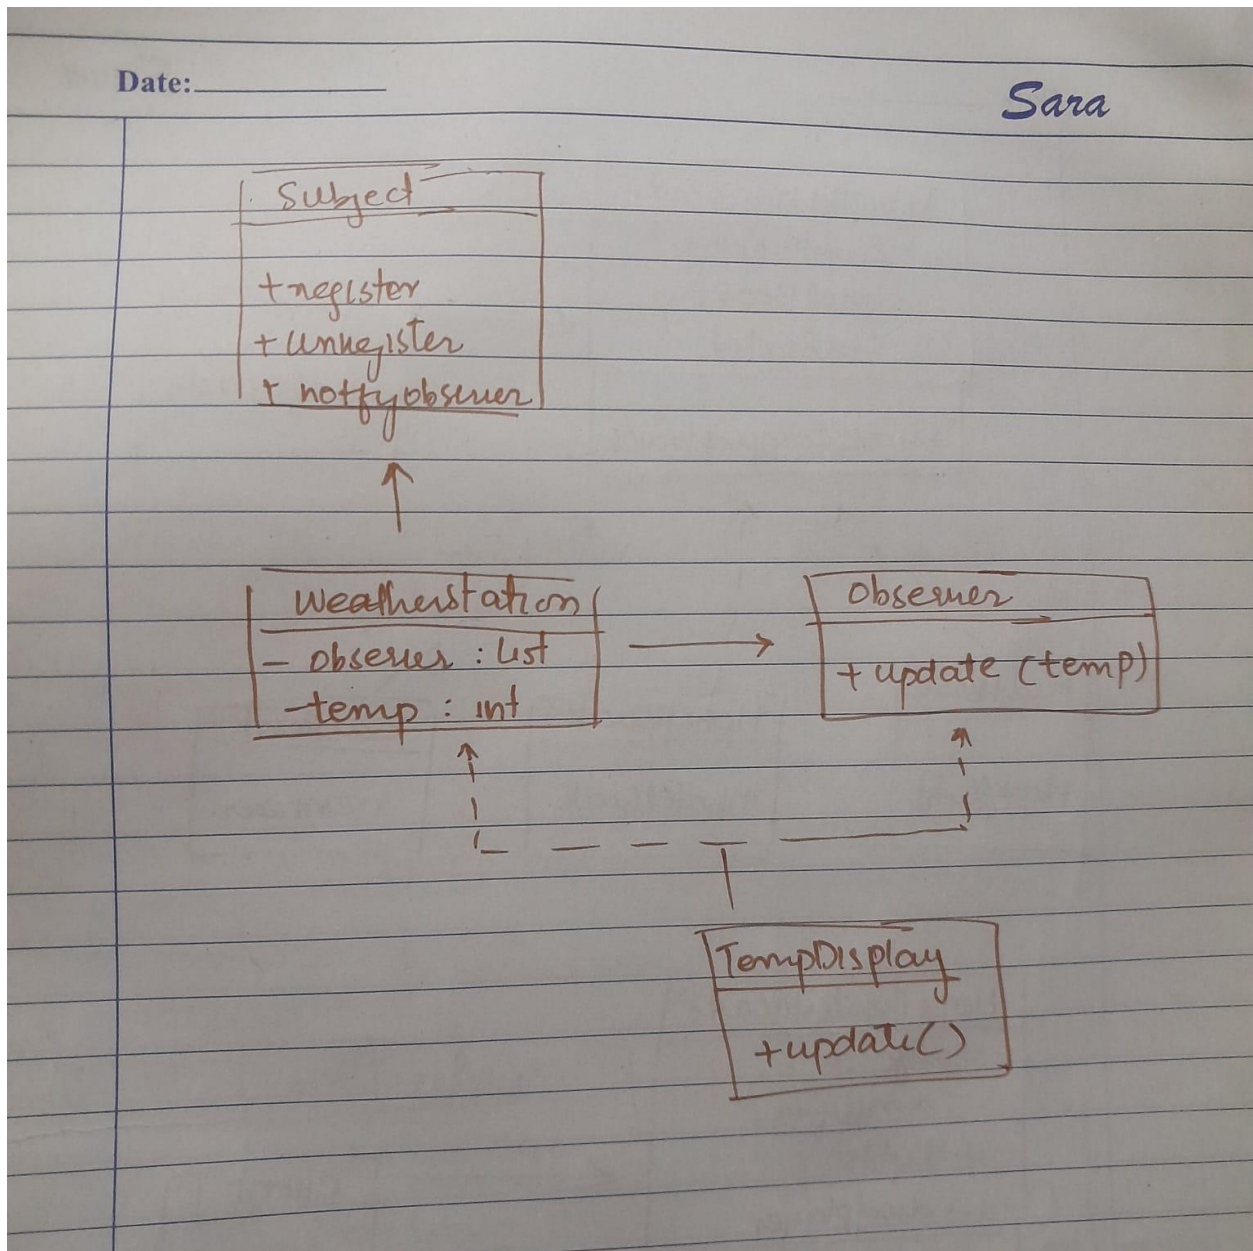 Date:
Sara
Subject
+register
+unregister
+ notfyobserver
Weatherstation
- observer : list
-temp : int
observer
+ update (temp)
TempDisplay
+update()